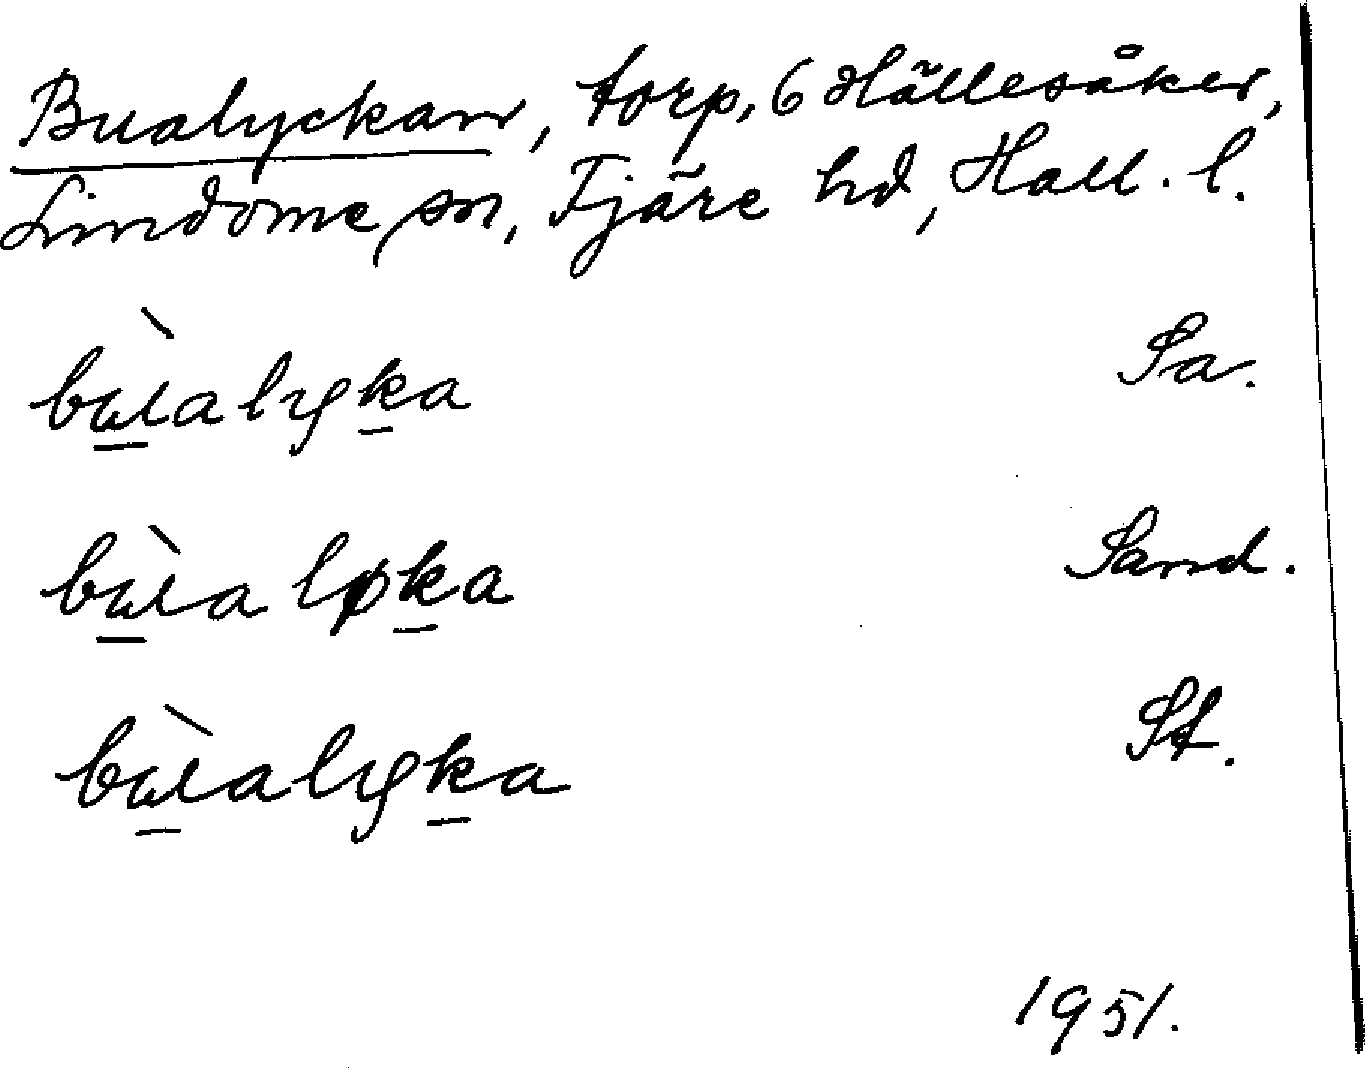 Bualyckan, torp, 6 Hällesåker,
Lindome sn, Fjäre hd, Hall. l.
bù̲alyk̲a Sa.
bù̲aløk̲a Sand.
bù̲alyk̲a St.
1951.